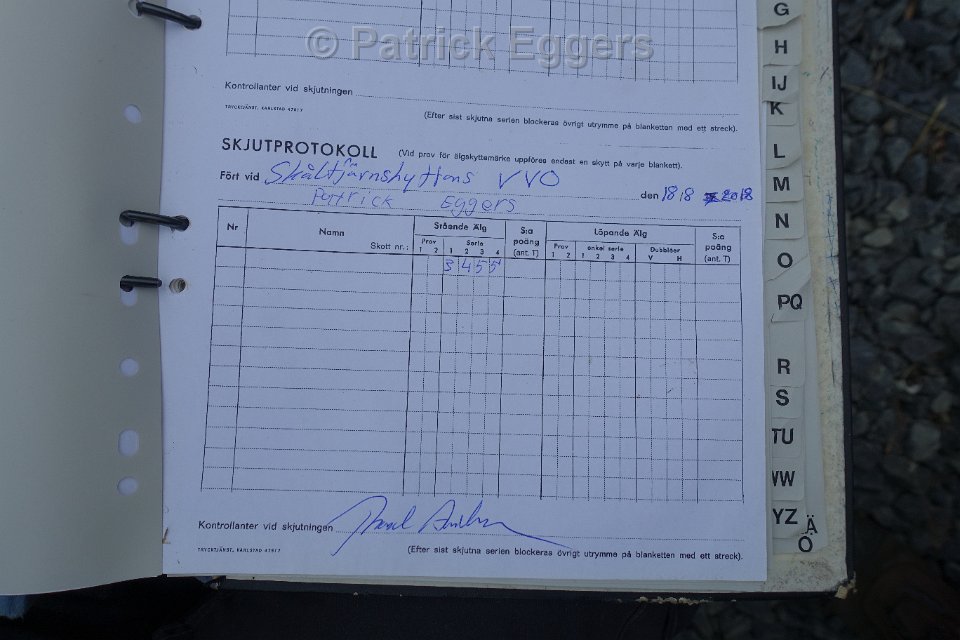 © Patrick Eggers
Kontrollanter vid skjutningen
TRYCKTJÄNST, KARLSTAD 4781 7
(Efter sist skjutna serien blockeras övrigt utrymme på blanketten med ett streck).
SKJUTPROTOKOLL (Vid prov för älgskyttemärke uppföres endast en skytt på varje blankett).
Fört vid Skåltjärnshyttans VVO den 18 18 2018
Patrick Eggers
Nr Namn Skott nr.: Stående Älg Prov Serie 1 2 1 2 3 4 S:a poäng (ant. T) Löpande Älg Prov enkel serie Dubbléer 1 2 1 2 3 4 V H S:a poäng (ant. T)
3 4 5 5
Kontrollanter vid skjutningen
TRYCKTJÄNST, KARLSTAD 4781 7
(Efter sist skjutna serien blockeras övrigt utrymme på blanketten med ett streck).
G
H
IJ
K
L
M
N
O
PQ
R
S
TU
VW
YZ
Ä
Ö